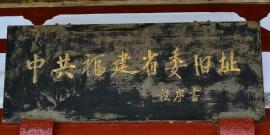 中共福建省委旧址